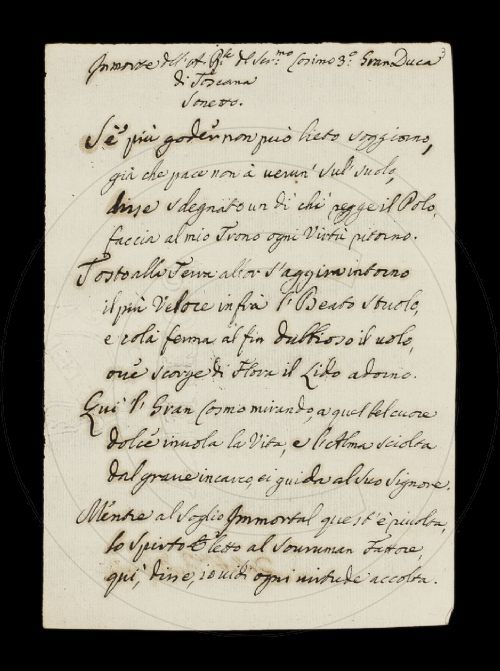 In morte dell'A. Rle del Ser.mo Cosimo 3.º Gran Duca
di Toscana
Sonetto.
Sè più goder non può lieto soggiorno,
già che pace non à verun' sul' suolo,
disse sdegnato un dì chi regge il Polo,
faccia al mio Trono ogni Virtù ritorno.
Tosto alla Terra allor s'aggira intorno
il più Veloce infrà l'Beato stuolo,
e colà ferma al fin dubbioso il uolo,
ouè scorge di Flora il Lido adorno.
Qui l'Gran Cosmo mirando, a quel bel cuore
dolcè inuola la Vita, e l'Alma sciolta
dal graue incarco, ei guida al suo Signore.
Mentre al soglio Immortal quest'è riuolta,
lo spirto Eletto al souruman Fattore,
qui, disse, io uidi ogni uirtude accolta.